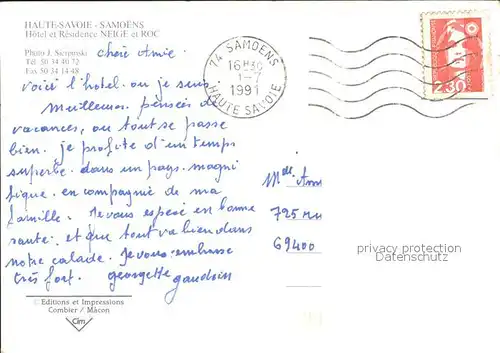 HAUTE-SAVOIE - SAMOËNS
Hôtel et Résidence NEIGE et ROC
Photo J. Sierpinski
Tél 50 34 40 72
Fax 50 34 14 48
chère Amie.
voici l'hotel. ou je suis
meilleures pensés de
vacances, ou tout se passe
bien. je profite d'un temps
superbe. dans un pays. magni
fique. en compagnie de ma
famille. Je vous espère en bonne
santé. et que tout va bien dans
notre calade. Je vous embrasse
très fort. georgette gaudoin
©Editions et Impressions
Combier / Mâcon
Cim
74 SAMOENS
16H30
1-7
1991
HAUTE SAVOIE
2,30
Mme Am
725 Ru
69400
privacy protection
Datenschutz